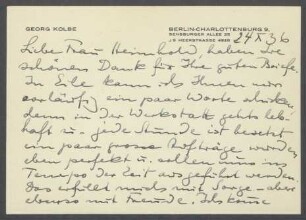 GEORG KOLBE
BERLIN-CHARLOTTENBURG 9.
SENSBURGER ALLEE 25
J 9 HEERSTRASSE 4222
24 X 36
Liebe Frau Heimhold, haben Sie
schönen Dank für Ihre guten Briefe.
In Eile kann ich Ihnen nur
vorläufig ein paar Worte
denn in der Werkstatt gehts leb-
haft u. jede Stunde ist besetzt
ein paar grosse Aufträge wurden
eben perfekt u. sollen nun im
Tempo der Zeit ausgeführt werden.
Das erfüllt mich mit Sorge - aber
ebenso mit Freude. Ich